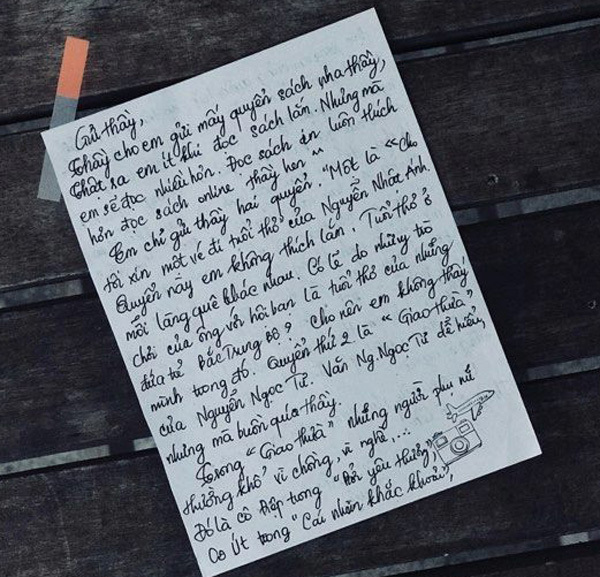 Gửi thầy,
Thầy cho em gửi mấy quyển sách nha thầy,
Thật ra em ít khi đọc sách lắm. Nhưng mà
em sẽ đọc nhiều hơn. Đọc sách in luôn thích
hơn đọc sách online thầy hen ^^
Em chỉ gửi thầy hai quyển. "Một là «Cho
tôi xin một vé đi tuổi thơ của Nguyễn Nhật Ánh.
Quyển này em không thích lắm. Tuổi thơ ở
mỗi làng quê khác nhau. Có lẽ do những trò
chơi của ông với hội bạn là tuổi thơ của những
đứa từ Bắc Trung Bộ? Cho nên em không thấy
mình trong đó. Quyển thứ 2 là "Giao thừa"
của Nguyễn Ngọc Tư. Văn Ng.Ngọc Tư dễ hiểu,
nhưng mà buồn quá thầy.
Trong "Giao thừa" những người phụ nữ
thường khổ vì chồng, vì nghề,...
Đó là cô Điệp trong "Đời yêu thương",
Cô Út trong "Cái nhìn khắc khoải",